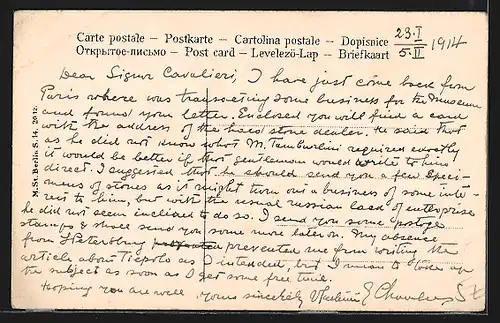 Carte postale – Postkarte – Cartolina postale – Dopisnice
Открытое-письмо – Post card – Levelező-Lap – Briefkaart
23.I
5.II
1914
M.St. Berlin S. 14. 2012.
Dear Signor Cavalieri, I have just come back from
Paris where was transacting some business for the Museum
and found your letter. Enclosed you will find a card
with the address of the hard stone dealer. He said that
as he did not know what M. Tamburlini required exactly
it would be better if that gentleman would write to him
direct. I suggested that he should send you a few speci-
mens of stones as it might turn out a business of some inte-
rest to him, but with the usual russian lack of enterprise
he did not seem inclined to do so. I send you some postage
stamps & shall send you some more later on. My absence
from St Petersburg prevented me from writing the
article about Tiepolo as I intended, but I mean to take up
the subject as soon as I get some free time.
Hoping you are well
yours sincerely Vladimir